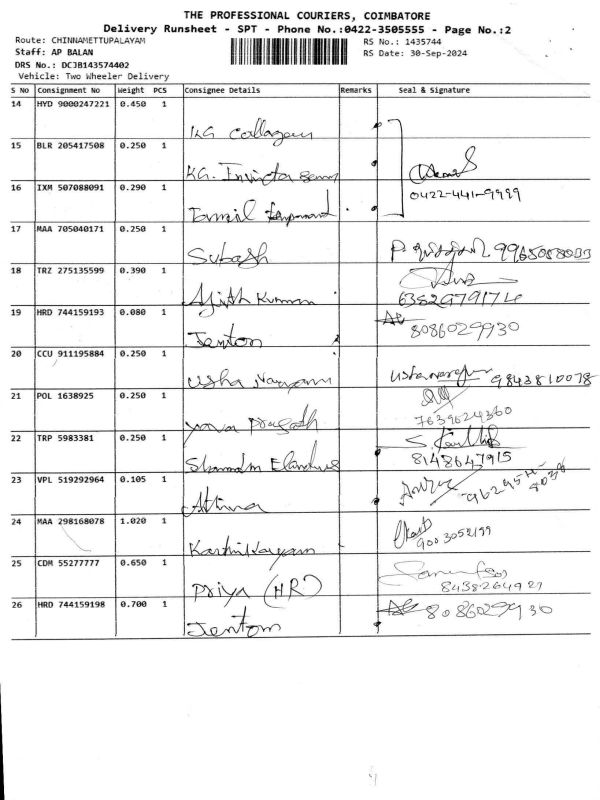 THE PROFESSIONAL COURIERS, COIMBATORE
Delivery Runsheet - SPT - Phone No.:0422-3505555 - Page No.:2
Route: CHINNAMETTUPALAYAM RS No.: 1435744
Staff: AP BALAN RS Date: 30-Sep-2024
DRS No.: DCJB143574402
Vehicle: Two Wheeler Delivery
S No Consignment No Weight PCS Consignee Details Remarks Seal & Signature
14 HYD 9000247221 0.450 1
KG
15 BLR 205417508 0.250 1
KG. Invicta
16 IXM 507088091 0.290 1
0422-441-9999
Tamil
17 MAA 705040171 0.250 1
Subash P. 9965058033
18 TRZ 275135599 0.390 1
Ajith Kumman 6382979174
19 HRD 744159193 0.080 1
Jenton 8086029930
20 CCU 911195884 0.250 1
Usha Narayanan 9843810078
21 POL 1638925 0.250 1
7639624360
22 TRP 5983381 0.250 1
8148647915
23 VPL 519292964 0.105 1
Athiva
24 MAA 298168078 1.020 1
9003052199
25 CDM 55277777 0.650 1
Priya (HR) 8438264921
26 HRD 744159198 0.700 1
Jentom 8086029930